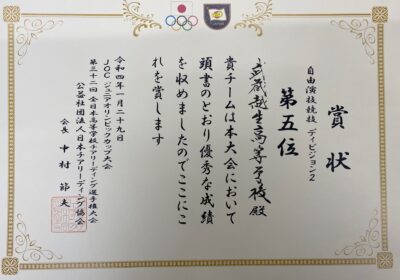 賞状
自由演技競技 ディビジョン2
第五位
武蔵越生高等学校殿
貴チームは本大会において
頭書のとおり優秀な成績
を収めましたのでここにこ
れを賞します
令和四年一月二十九日
JOCジュニアオリンピックカップ大会
第三十二回 全日本高等学校チアリーディング選手権大会
公益社団法人日本チアリーディング協会
会長 中村節夫